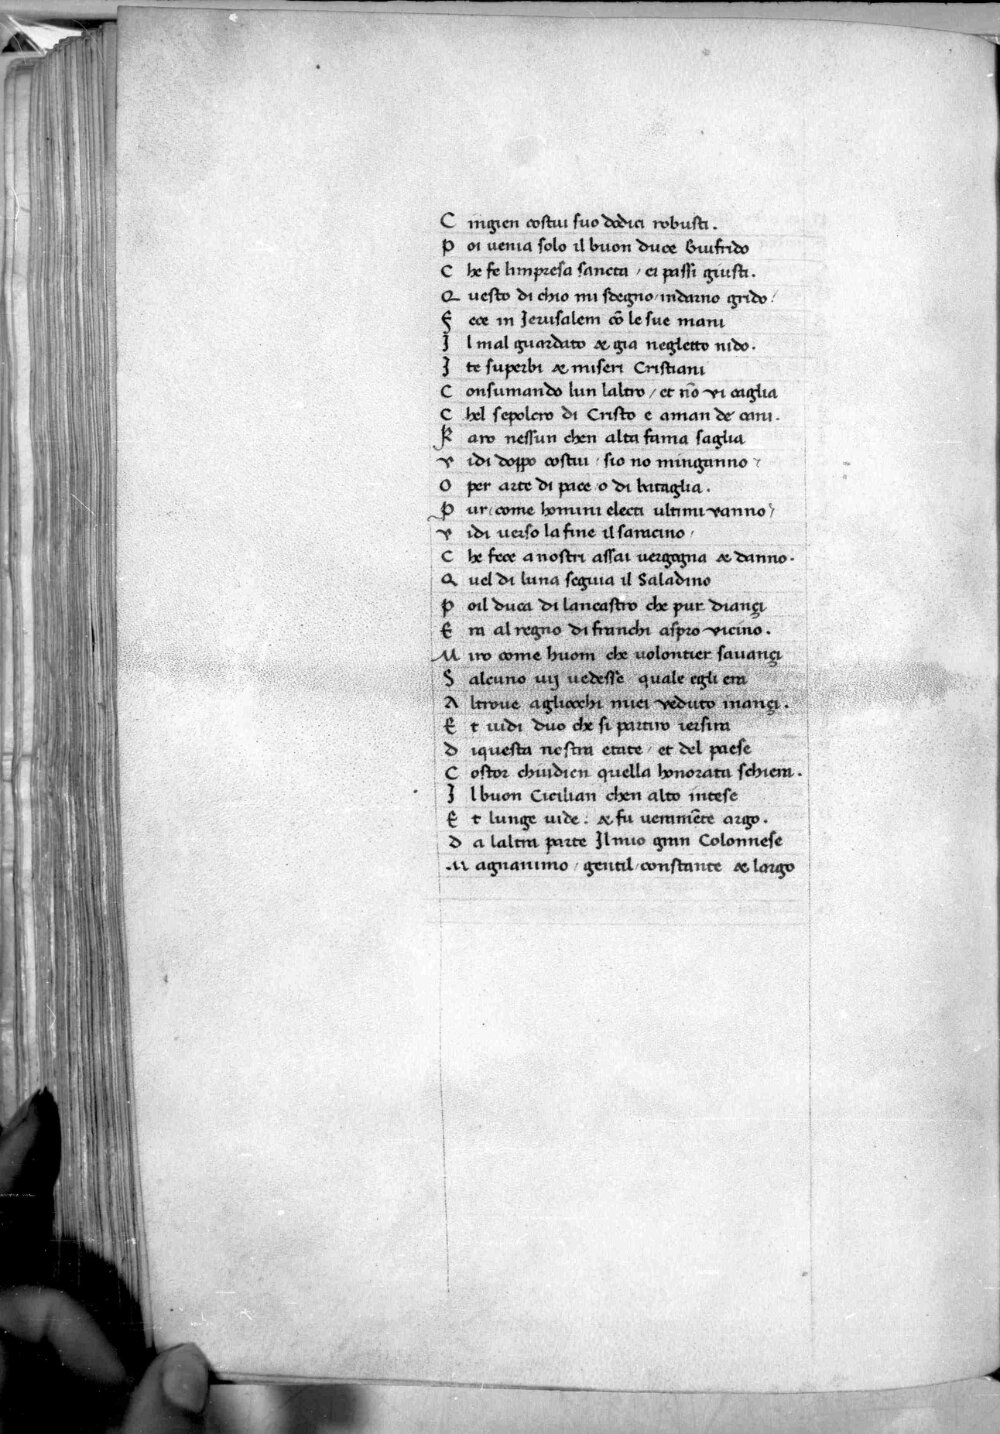 C ingien costui suo dodici robusti.
P oi uenia solo il buon duce Giufrido
C he fe limpresa sancta / ei passi giusti.
Q uesto di chio mi sdegno / indarno grido /
F ece in Jerusalem cō le sue mani
J l mal guardato & gia negletto nido.
J te superbi & miseri Cristiani
C onsumando lun laltro / et nō vi caglia
C hel sepolcro di Cristo e aman de cani.
R aro nessun chen alta fama saglia
V idi doppo costui / sio no minganno /
O per arte di pace o di bataglia.
P ur / come homini electi ultimi vanno /
V idi uerso la fine il saracino /
C he fece a nostri assai uergogna & danno.
Q uel di luna seguia il Saladino
P oil duca di lancastro che pur diançi
E ra al regno di franchi aspro vicino.
M iro come huom che uolontier sauançi
S alcuno uij uedesse quale egli era
A ltroue agliocchi miei veduto inançi.
E t uidi duo che si partiro iersira
D iquesta nostra etate / et del paese
C ostor chiudien quella honorata schiera.
J l buon Cicilian chen alto intese
E t lunge uide : & fu uerammēte argo.
D a laltra parte Jl mio gran Colonnese
M agnanimo / gentil / constante & largo